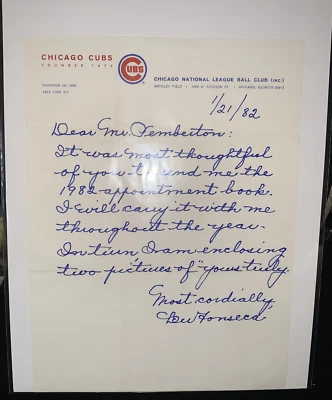 CHICAGO CUBS
FOUNDED 1876
CUBS
CHICAGO NATIONAL LEAGUE BALL CLUB (INC.)
WRIGLEY FIELD • 1060 W. ADDISON ST. • CHICAGO, ILLINOIS 60613
TELEPHONE 281-5050
AREA CODE 312
1/21/82
Dear Mr. Pemberton:
It was most thoughtful
of you to send me the
1982 appointment book.
I will carry it with me
throughout the year.
In turn, I am enclosing
two pictures of "yours truly.
Most cordially,
Lew Fonseca